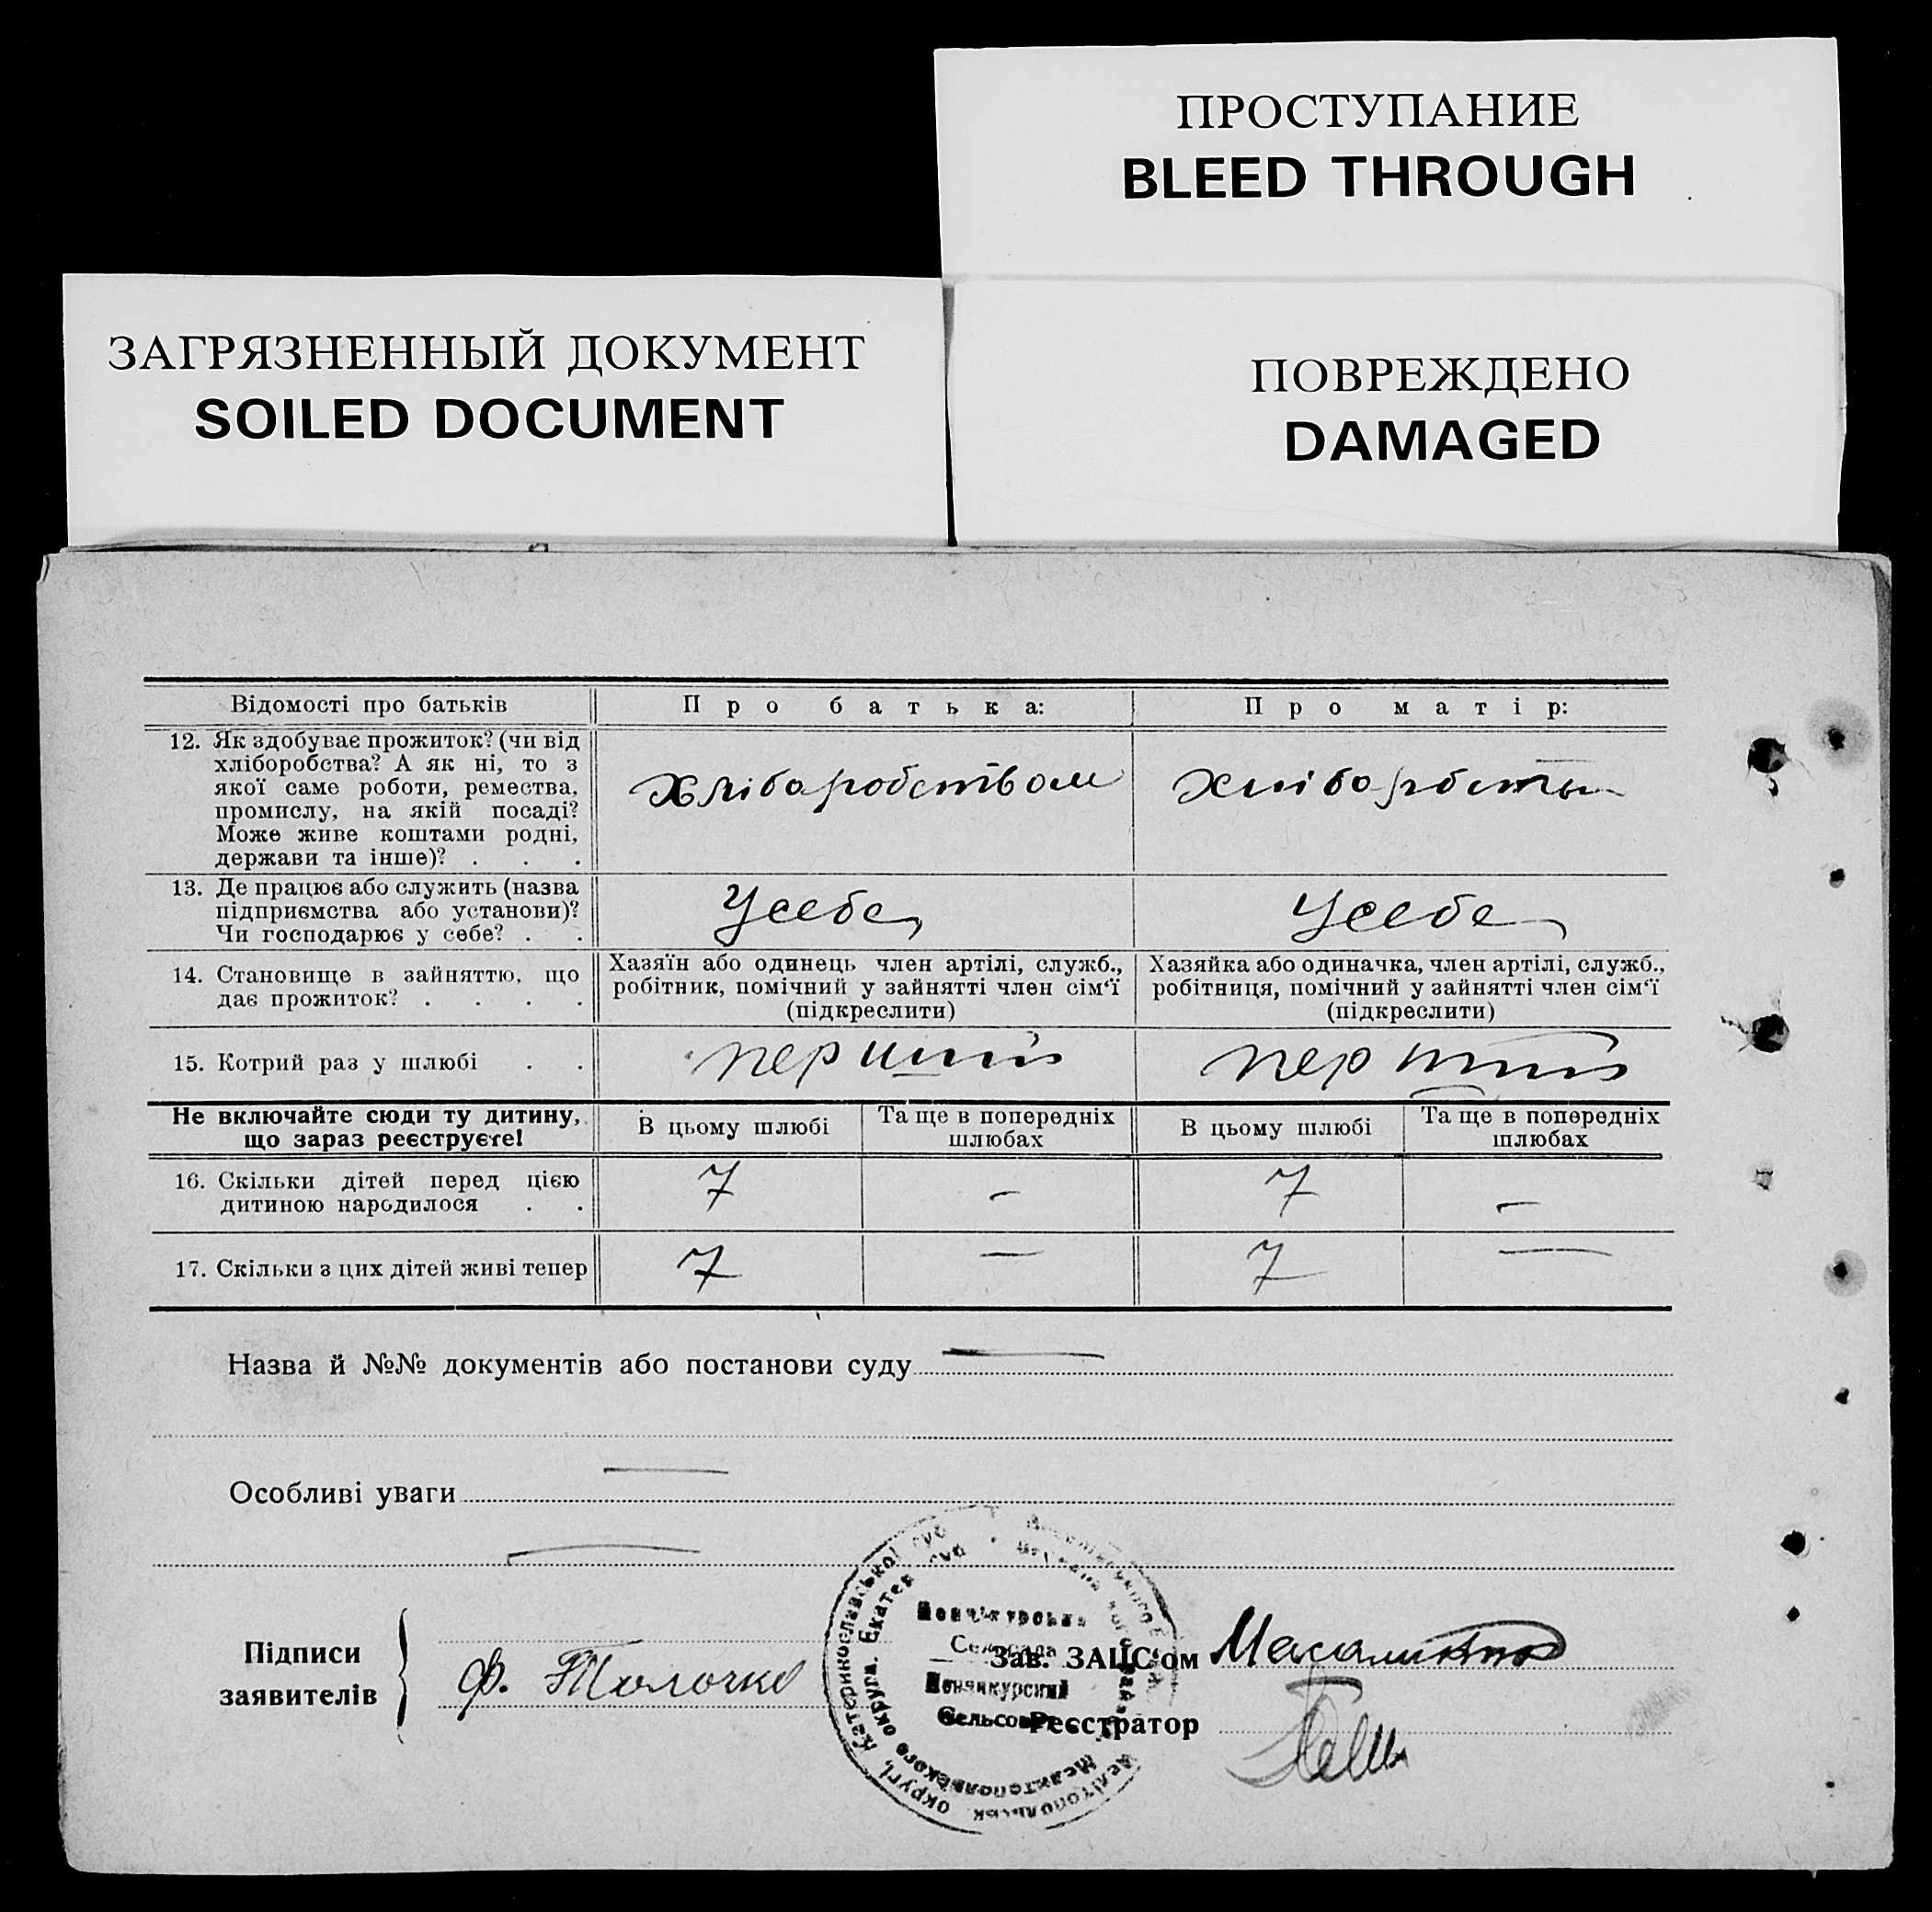 ПРОСТУПАНИЕ
BLEED THROUGH
ЗАГРЯЗНЕННЫЙ ДОКУМЕНТ
SOILED DOCUMENT
ПОВРЕЖДЕНО
DAMAGED
Відомості про батьків
Про батька:
Про матір:
12. Як здобуває прожиток? (чи від
хліборобства? А як ні, то з
якої саме роботи, ремества,
промислу, на якій посаді?
Може живе коштами родні,
держави та інше)? . . .
Хліборобством
13. Де працює або служить (назва
підприємства або установи)?
Чи господарює у себе? . .
Усебе
Усебе
14. Становище в зайняттю, що
дає прожиток? . . . .
Хазяїн або одинець член артілі, служб.,
робітник, помічний у зайнятті член сім'ї
(підкреслити)
Хазяйка або одиначка, член артілі, служб.,
робітниця, помічний у зайнятті член сім'ї
(підкреслити)
15. Котрий раз у шлюбі . .
перший
перший
Не включайте сюди ту дитину,
що зараз реєструєте!
В цьому шлюбі
Та ще в попередніх
шлюбах
В цьому шлюбі
Та ще в попередніх
шлюбах
16. Скільки дітей перед цією
дитиною народилося . .
7
—
7
—
17. Скільки з цих дітей живі тепер
7
—
7
—
Назва й №№ документів або постанови суду
Особливі уваги
Підписи
заявителів
Ф. Толочко
Зав. ЗАЦС'ом
Реєстратор
Сельсовет